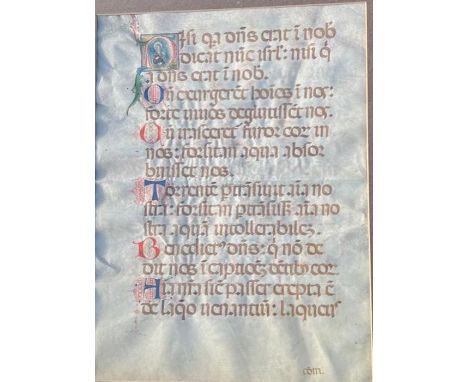 Nisi qa dn̄s erat ī nob
dicat nūc isrl: nisi q̄
a dn̄s erat ī nob.
Cū exurgerēt hoīes ī nos:
forte uiuos deglutisset nos.
Cū irasceret furor eor in
nos: forsitan aqua absor
buisset nos.
Torrentē ptrāsiuit aīa no
stra: forsitan ptrāsiss; aīa no
stra aquā intollerabilez.
Benedict dn̄s: q̄ nō de
dit nos ī captiōez dentib; eor.
Aīa nr̄a sic passer erepta ē
de laq̄o uenantiū: laqueus